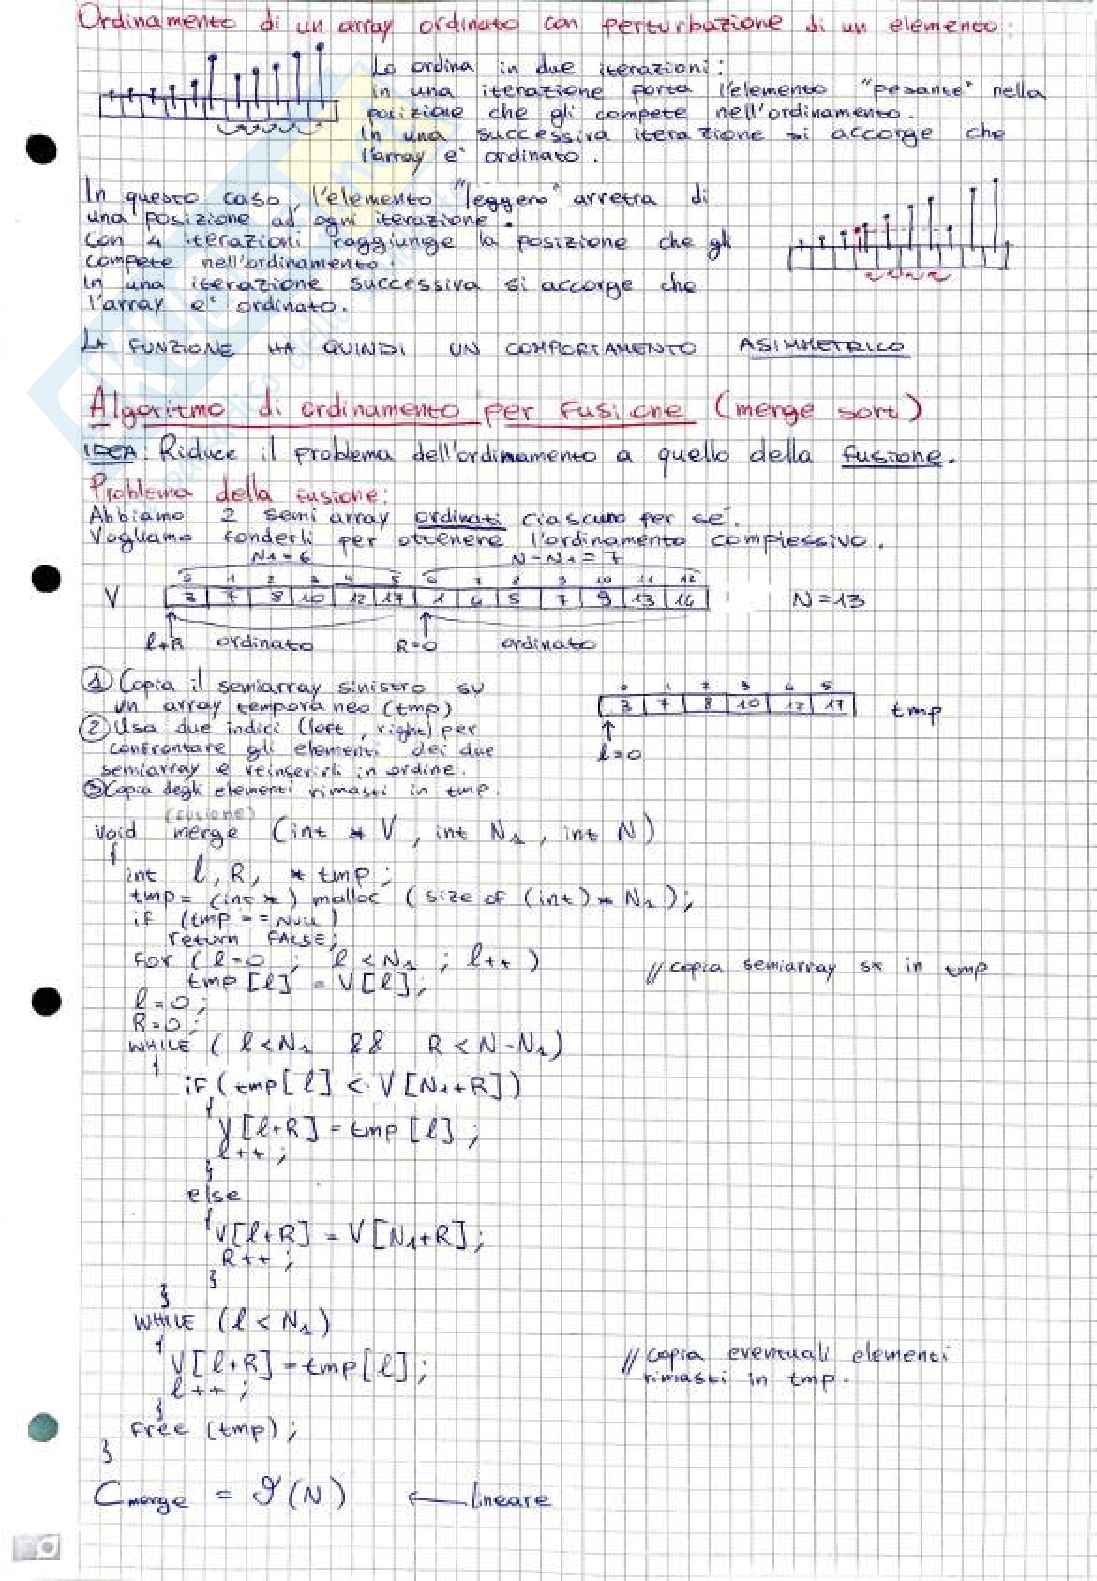 Ordinamento di un array ordinato con perturbazione di un elemento:
Lo ordina in due iterazioni:
in una iterazione porta l'elemento "pesante" nella
posizione che gli compete nell'ordinamento.
In una successiva iterazione si accorge che
l'array e' ordinato.
In questo caso, l'elemento "leggero" arretra di
una posizione ad ogni iterazione.
Con 4 iterazioni raggiunge la posizione che gli
compete nell'ordinamento.
In una iterazione successiva si accorge che
l'array e' ordinato.
LA FUNZIONE HA QUINDI UN COMPORTAMENTO ASIMMETRICO
Algoritmo di ordinamento per fusione (merge sort)
IDEA: Riduce il problema dell'ordinamento a quello della fusione.
Problema della fusione:
Abbiamo 2 semi array ordinati ciascuno per se'.
Vogliamo fonderli per ottenere l'ordinamento complessivo.
N1=6 N-N1=7
0 1 2 3 4 5 6 7 8 9 10 11 12
V 3 7 8 10 12 17 1 4 5 7 9 13 14 N=13
l+R ordinato R=0 ordinato
① Copia il semiarray sinistro su
un array temporaneo (tmp)
0 1 2 3 4 5
3 7 8 10 12 17 tmp
l=0
② Usa due indici (left, right) per
confrontare gli elementi dei due
semiarray e reinserirli in ordine.
③ Copia degli elementi rimasti in tmp.
(fusione)
void merge (int * V, int N1, int N)
{
int l, R, * tmp;
tmp= (int *) malloc (size of (int) * N1);
if (tmp == NULL)
return FALSE;
For (l=0 ; l<N1 ; l++) // copia semiarray sx in tmp
tmp [l] = V[l];
l=0;
R=0;
WHILE ( l<N1 && R<N-N1)
{
iF (tmp[l] < V[N1+R])
{
V[l+R] = tmp [l];
l++;
}
else
{
V[l+R] = V[N1+R];
R++;
}
}
WHILE (l<N1)
{
V[l+R] = tmp[l]; // copia eventuali elementi
l++; rimasti in tmp.
}
Free (tmp);
}
Cmerge = ϑ(N) ← lineare